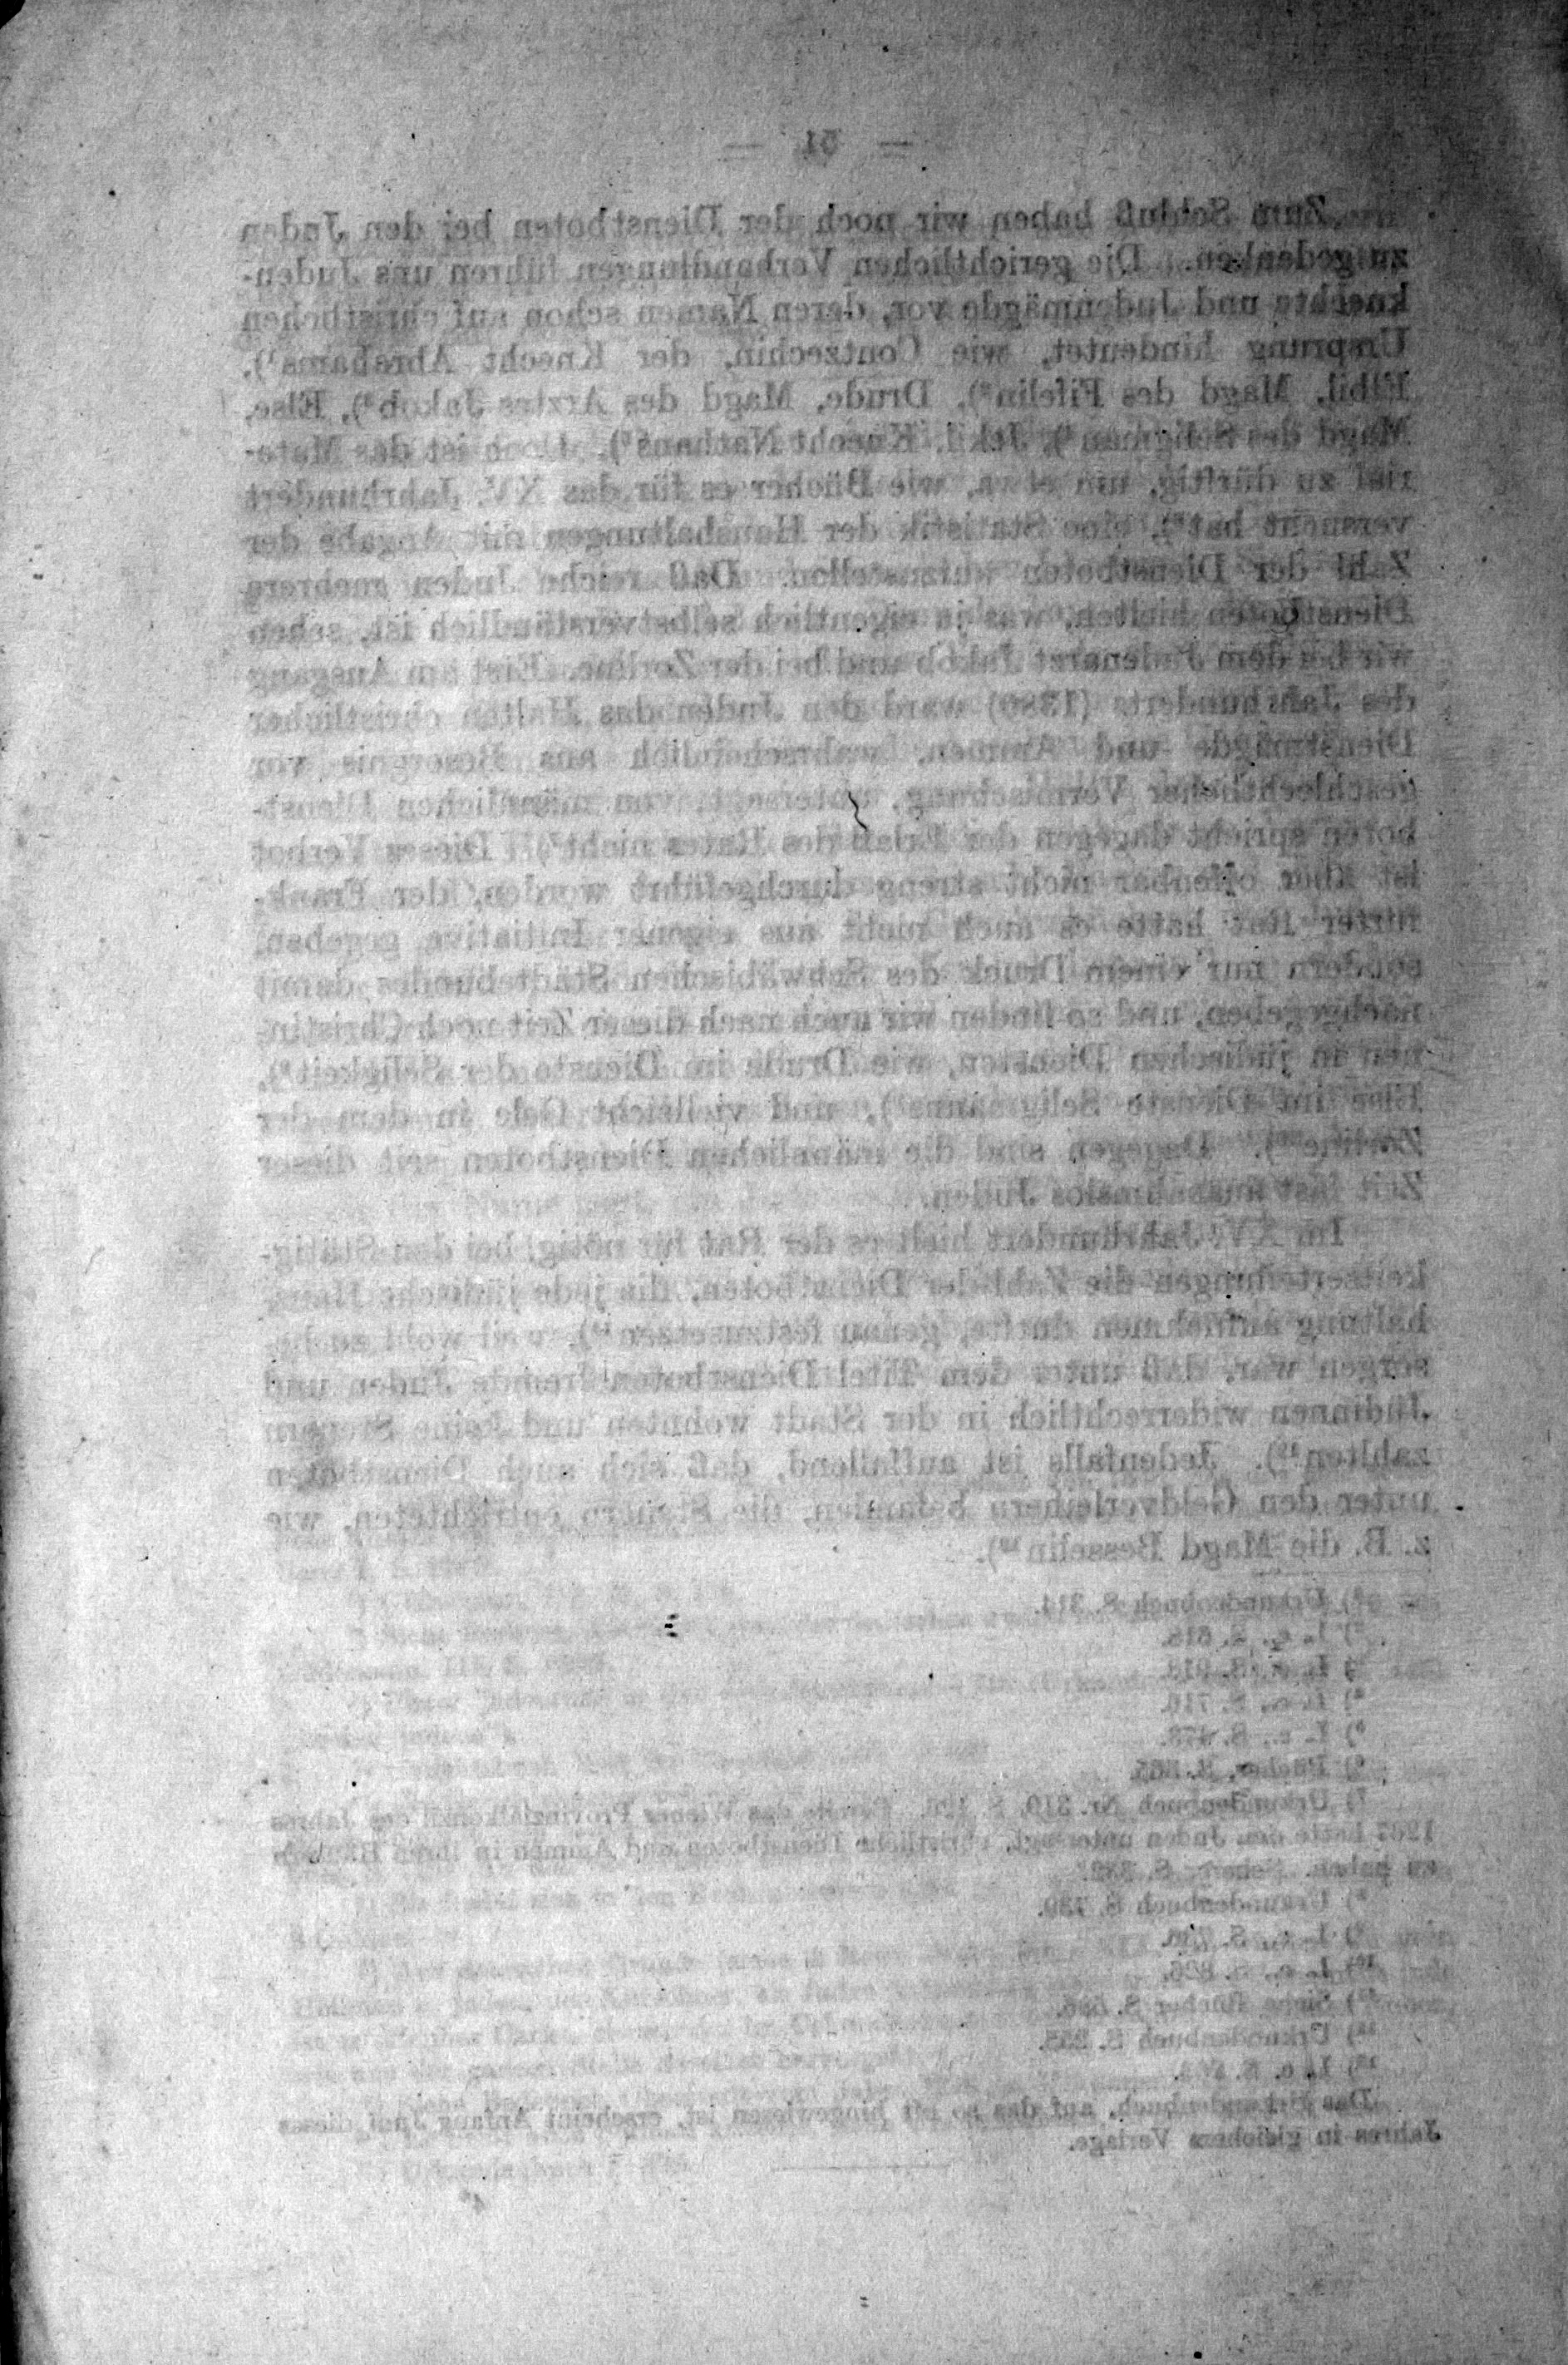 — 51 —
Zum Schluß haben wir noch der Dienstboten bei den Juden
zu gedenken. Die gerichtlichen Verhandlungen führen uns Juden-
knechte und Judenmägde vor, deren Namen schon auf christlichen
Ursprung hindeutet, wie Contzechin, der Knecht Abrahams¹),
Magd des Fifelin²), Drude, Magd des Arztes Jakob³), Else,
Magd des Seligman⁴), Jekil, Knecht Nathans⁵). Doch ist das Mate-
rial zu dürftig, um etwa, wie Bücher es für das XV. Jahrhundert
versucht hat⁶), eine Statistik der Haushaltungen mit Angabe der
Zahl der Dienstboten aufzustellen. Daß reiche Juden mehrere
Dienstboten hielten, was ja eigentlich selbstverständlich ist, sehen
wir bei dem Judenarzt Jakob und bei der Zorline. Erst am Ausgang
des Jahrhunderts (1386) ward den Juden das Halten christlicher
Dienstmägde und Ammen, wahrscheinlich aus Besorgnis vor
geschlechtlicher Vermischung, untersagt, von männlichen Dienst-
boten spricht dagegen der Erlaß des Rates nicht⁷). Dieses Verbot
ist aber offenbar nicht streng durchgeführt worden, der Frank-
furter Rat hatte es auch nicht aus eigener Initiative gegeben,
sondern nur einem Druck des Schwäbischen Städtebundes damit
nachgegeben, und so finden wir auch nach dieser Zeit noch Christin-
nen in jüdischen Diensten, wie Drude im Dienste der Seligkeit⁸),
Else im Dienste Seligmanns⁹), und vielleicht Gele in dem der
Zorline¹⁰). Dagegen sind die männlichen Dienstboten seit dieser
Zeit fast ausnahmslos Juden.
Im XV. Jahrhundert hielt es der Rat für nötig, bei den Stätig-
keitserteilungen die Zahl der Dienstboten, die jede jüdische Haus-
haltung aufnehmen durfte, genau festzusetzen¹¹), weil wohl zu be-
sorgen war, daß unter dem Titel Dienstboten fremde Juden und
Jüdinnen widerrechtlich in der Stadt wohnten und keine Steuern
zahlten¹²). Jedenfalls ist auffallend, daß sich auch Dienstboten
unter den Geldverleihern befanden, die Steuern entrichteten, wie
z. B. die Magd Besselin¹³).
Urkundenbuch S. 314.
²) L. c., S.
³) L. c., S.
⁴) L. c., S. 710.
⁵) L. c., S. 473.
⁶) Bücher, S.
⁷) Urkundenbuch Nr. 319, S. Bereits das Wiener Provinzialkonzil des Jahres
1267 hatte den Juden untersagt, christliche Dienstboten und Ammen in ihren Häusern
zu haben. S.
⁸) Urkundenbuch S. 739.
⁹) L. c., S.
¹⁰) L. c., S.
¹¹) Siehe Bücher S.
¹²) Urkundenbuch S.
¹³) L. c. S.
Das Urkundenbuch, auf das so oft hingewiesen ist, erscheint Anfang Juni dieses
Jahres in gleichem Verlage.